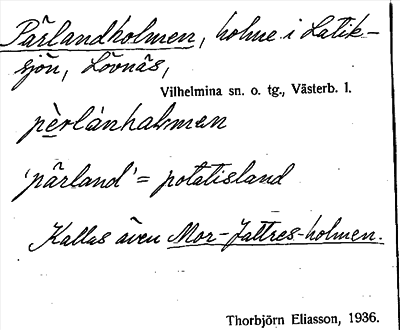 Pärlandholmen, holme i Latik-
sjön, Lövnäs,
Vilhelmina sn. o. tg., Västerb. l.
pèrlánhaḷmen
'pärland' = potatisland
Kallas även Mor-Jattres-holmen.
Thorbjörn Eliasson, 1936.